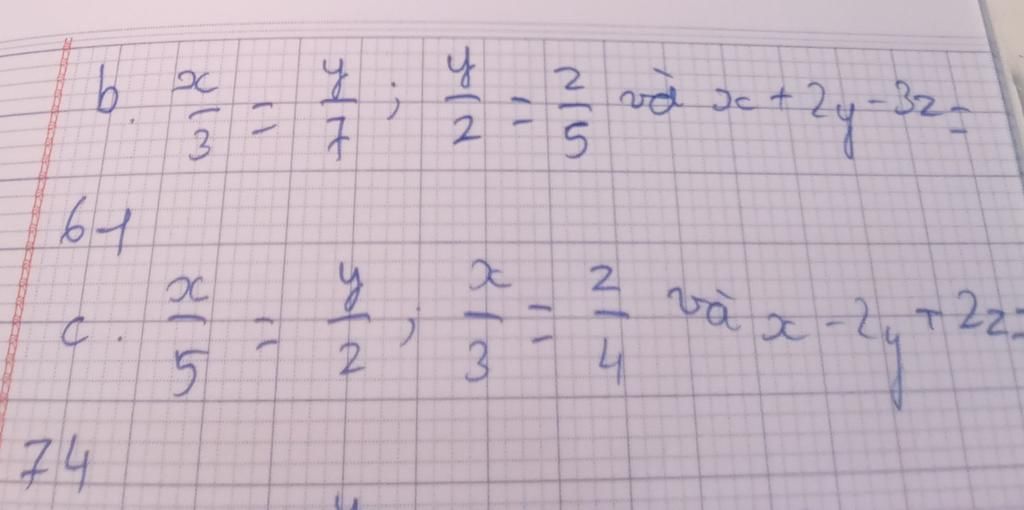 b. x/3 = y/7 ; y/2 = z/5 và x + 2y - 3z =
61
c. x/5 = y/2 ; x/3 = z/4 và x - 2y + 2z =
74
y